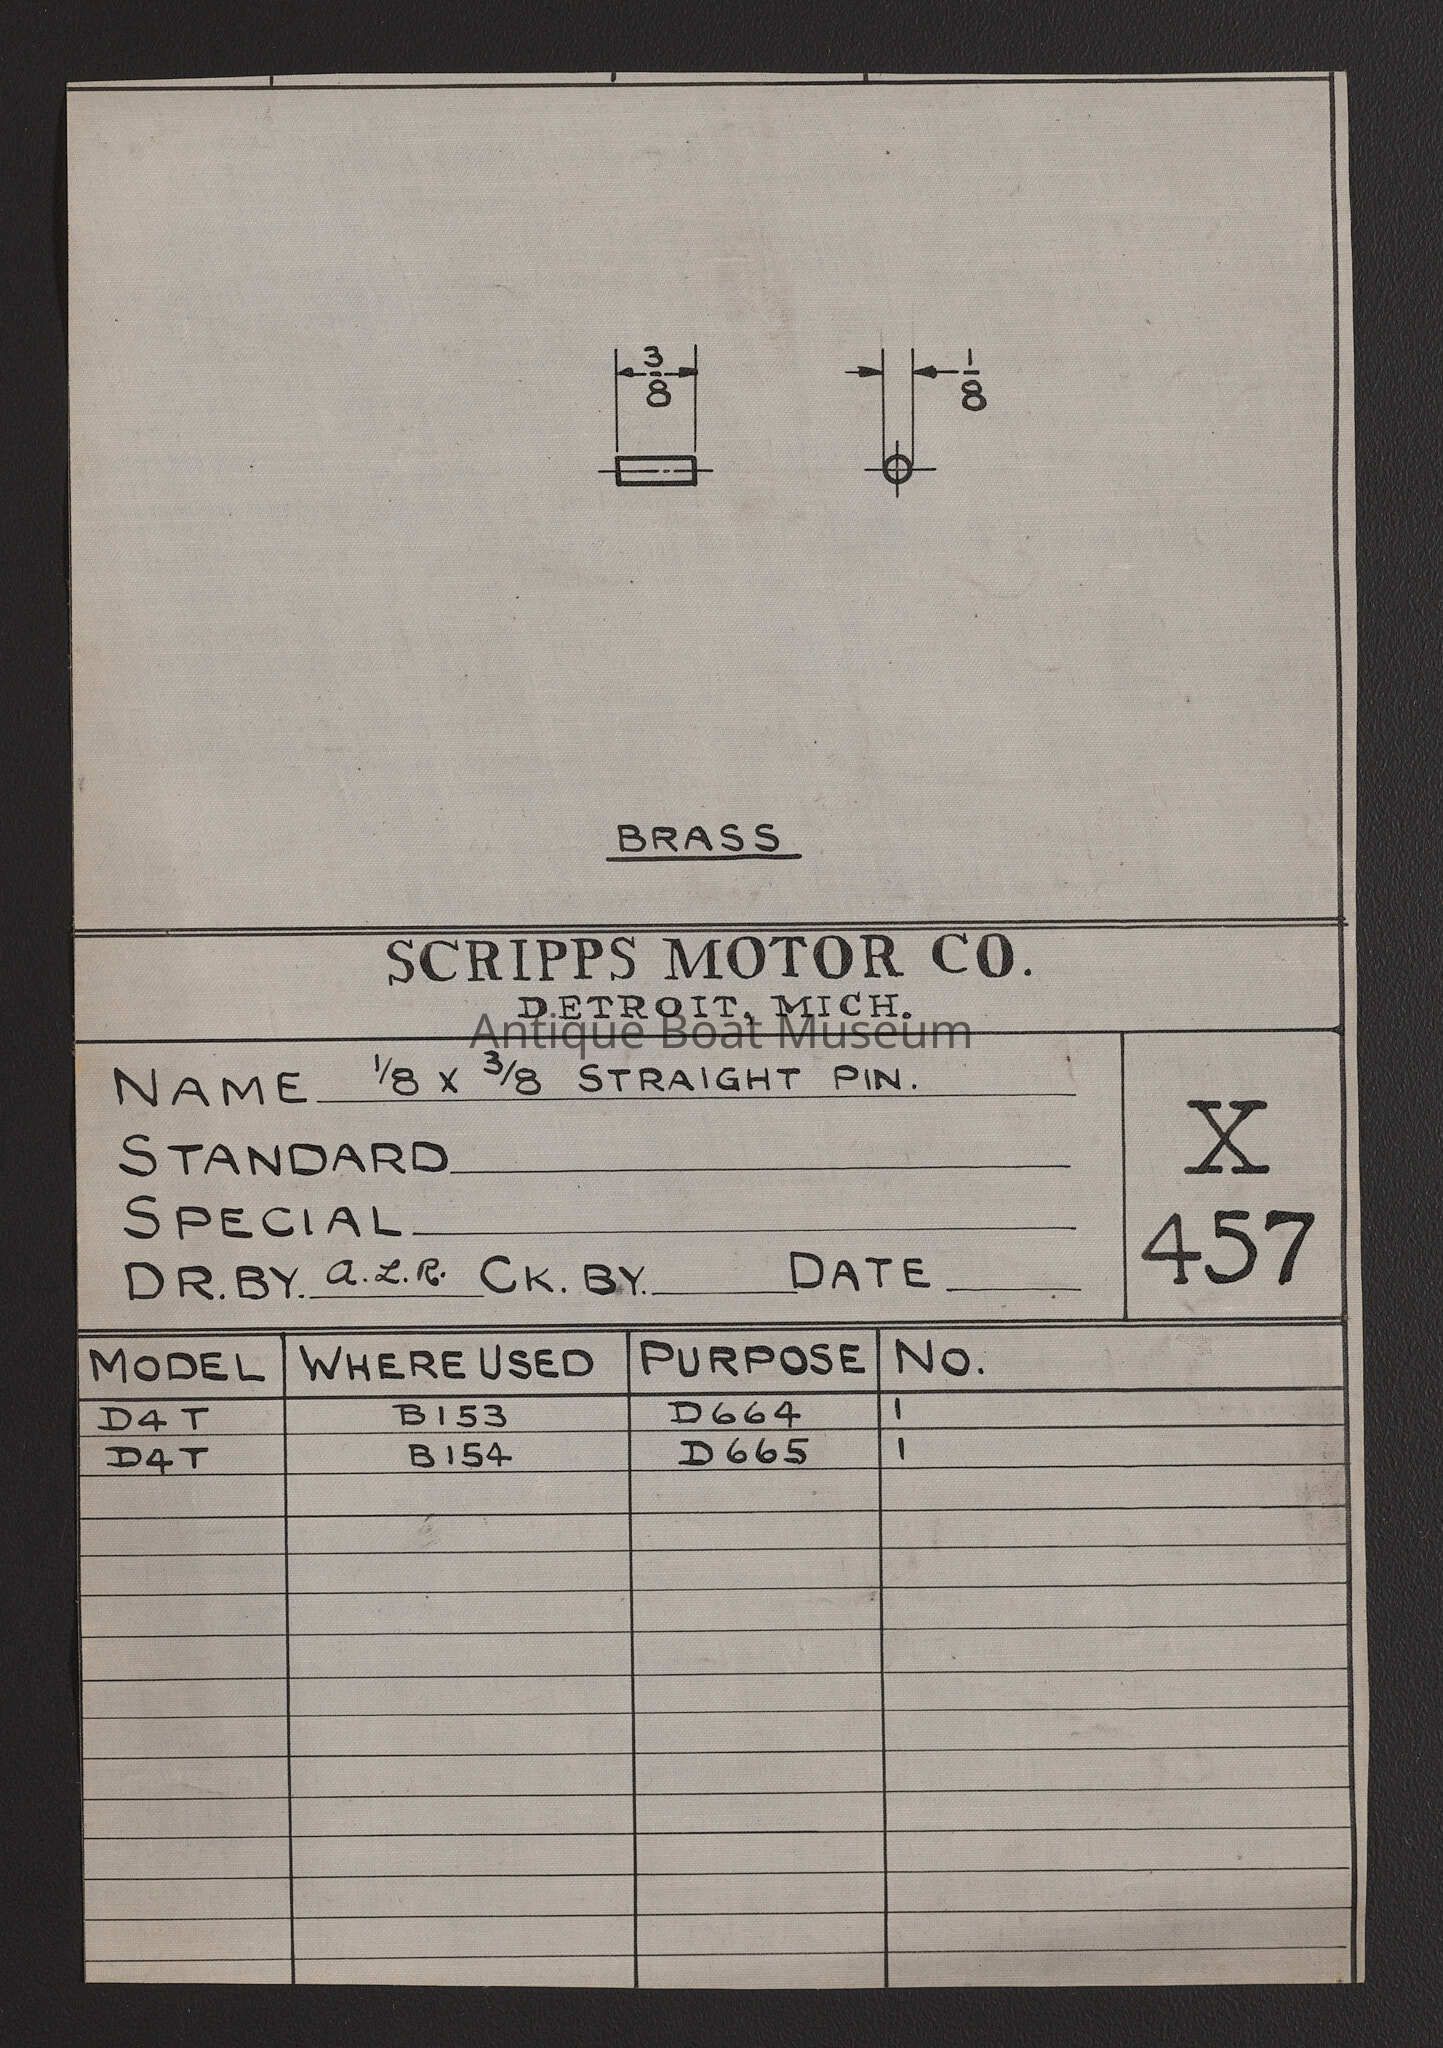 3/8 1/8
BRASS
SCRIPPS MOTOR CO.
DETROIT, MICH.
Antique Boat Museum
NAME 1/8 X 3/8 STRAIGHT PIN.
STANDARD
SPECIAL
DR. BY. A.L.R. CK. BY. DATE
X
457
MODEL WHERE USED PURPOSE NO.
D4T B153 D664 1
D4T B154 D665 1